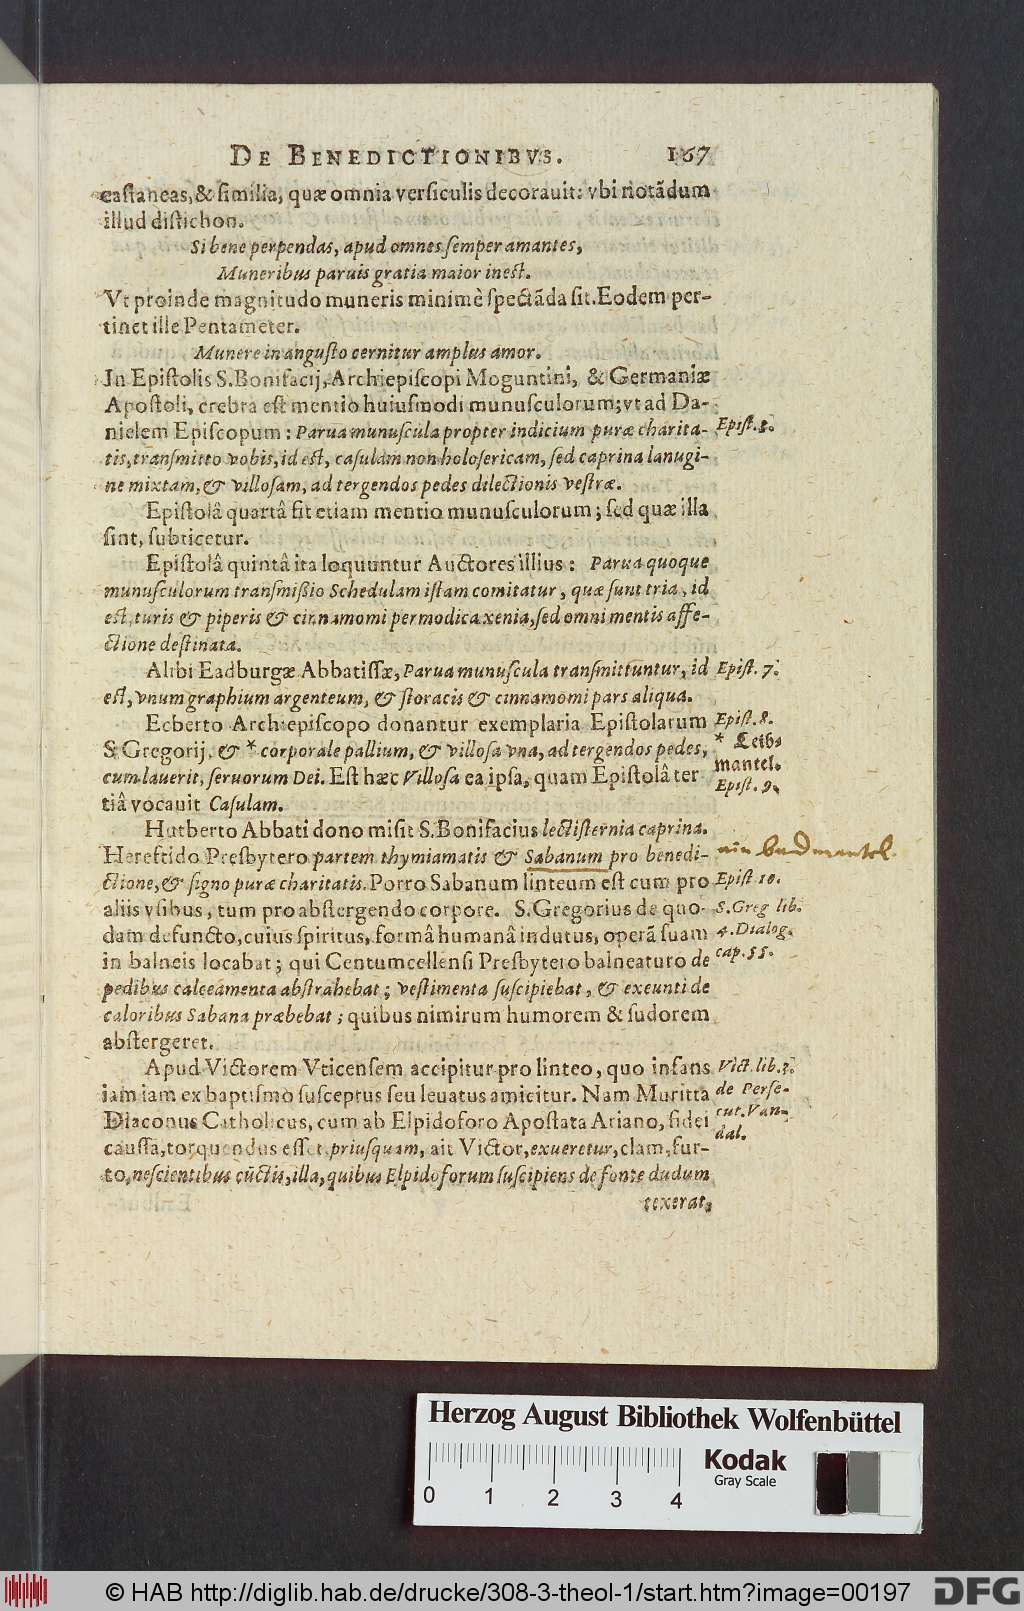 DE BENEDICTIONIBVS. 167
castaneas, & ſimilia, quæ omnia verſiculis decorauit: vbi notādum
illud diſtichon.
Si bene perpendas, apud omnes ſemper amantes,
Muneribus paruis gratia maior ineſt.
Vt proinde magnitudo muneris minimè ſpectāda ſit. Eodem per-
tinet ille Pentameter.
Munere in anguſto cernitur amplus amor.
In Epiſtolis S. Bonifacij, Archiepiſcopi Moguntini, & Germaniæ
Apoſtoli, crebra eſt mentio huiuſmodi munuſculorum; vt ad Da-
nielem Epiſcopum: Parua munuſcula propter indicium puræ charita-
Epiſt. 3.
tis, tranſmitto vobis, id eſt, caſulam non holoſericam, ſed caprina lanugi-
ne mixtam, & villoſam, ad tergendos pedes dilectionis veſtræ.
Epiſtolâ quartâ fit etiam mentio munuſculorum; ſed quæ illa
ſint, ſubticetur.
Epiſtolâ quintâ ita loquuntur Auctores illius: Parua quoque
munuſculorum tranſmißio Schedulam iſtam comitatur, quæ ſunt tria, id
eſt, turis & piperis & cinnamomi permodica xenia, ſed omni mentis affe-
ctione deſtinata.
Alibi Eadburgæ Abbatiſſæ, Parua munuſcula tranſmittuntur, id
Epiſt. 7.
eſt, vnum graphium argenteum, & ſtoracis & cinnamomi pars aliqua.
Ecberto Archiepiſcopo donantur exemplaria Epiſtolarum
Epiſt. 8.
S. Gregorij, & * corporale pallium, & villoſa vna, ad tergendos pedes,
* Leib-
cum lauerit, ſeruorum Dei. Eſt hæc Villoſa ea ipſa, quam Epiſtolâ ter
mantel.
Epiſt. 9.
tiâ vocauit Caſulam.
Hutberto Abbati dono miſit S. Bonifacius lectiſternia caprina.
Herefrido Presbytero partem thymiamatis & Sabanum pro benedi-
ain badmantel
ctione, & ſigno puræ charitatis. Porro Sabanum linteum eſt cum pro
Epiſt 10.
aliis vſibus, tum pro abſtergendo corpore. S. Gregorius de quo-
S. Greg lib.
dam defuncto, cuius ſpiritus, formâ humanâ indutus, operā ſuam
4. Dialog.
in balneis locabat; qui Centumcellenſi Presbytero balneaturo de
cap. 55.
pedibus calceamenta abſtrahebat; veſtimenta ſuſcipiebat, & exeunti de
caloribus Sabana præbebat; quibus nimirum humorem & ſudorem
abſtergeret.
Apud Victorem Vticenſem accipitur pro linteo, quo infans
Vict. lib. 3.
iam iam ex baptiſmo ſuſceptus ſeu leuatus amicitur. Nam Muritta
de Perſe-
Diaconus Catholicus, cum ab Elpidoforo Apoſtata Ariano, fidei
cut. Van-
cauſſa, torquendus eſſet, priuſquam, ait Victor, exueretur, clam, fur-
dal.
to, neſcientibus cūctis, illa, quibus Elpidoforum ſuſcipiens de fonte dudum
texerat,
Herzog August Bibliothek Wolfenbüttel
0 1 2 3 4
Kodak
Gray Scale
© HAB http://diglib.hab.de/drucke/308-3-theol-1/start.htm?image=00197
DFG